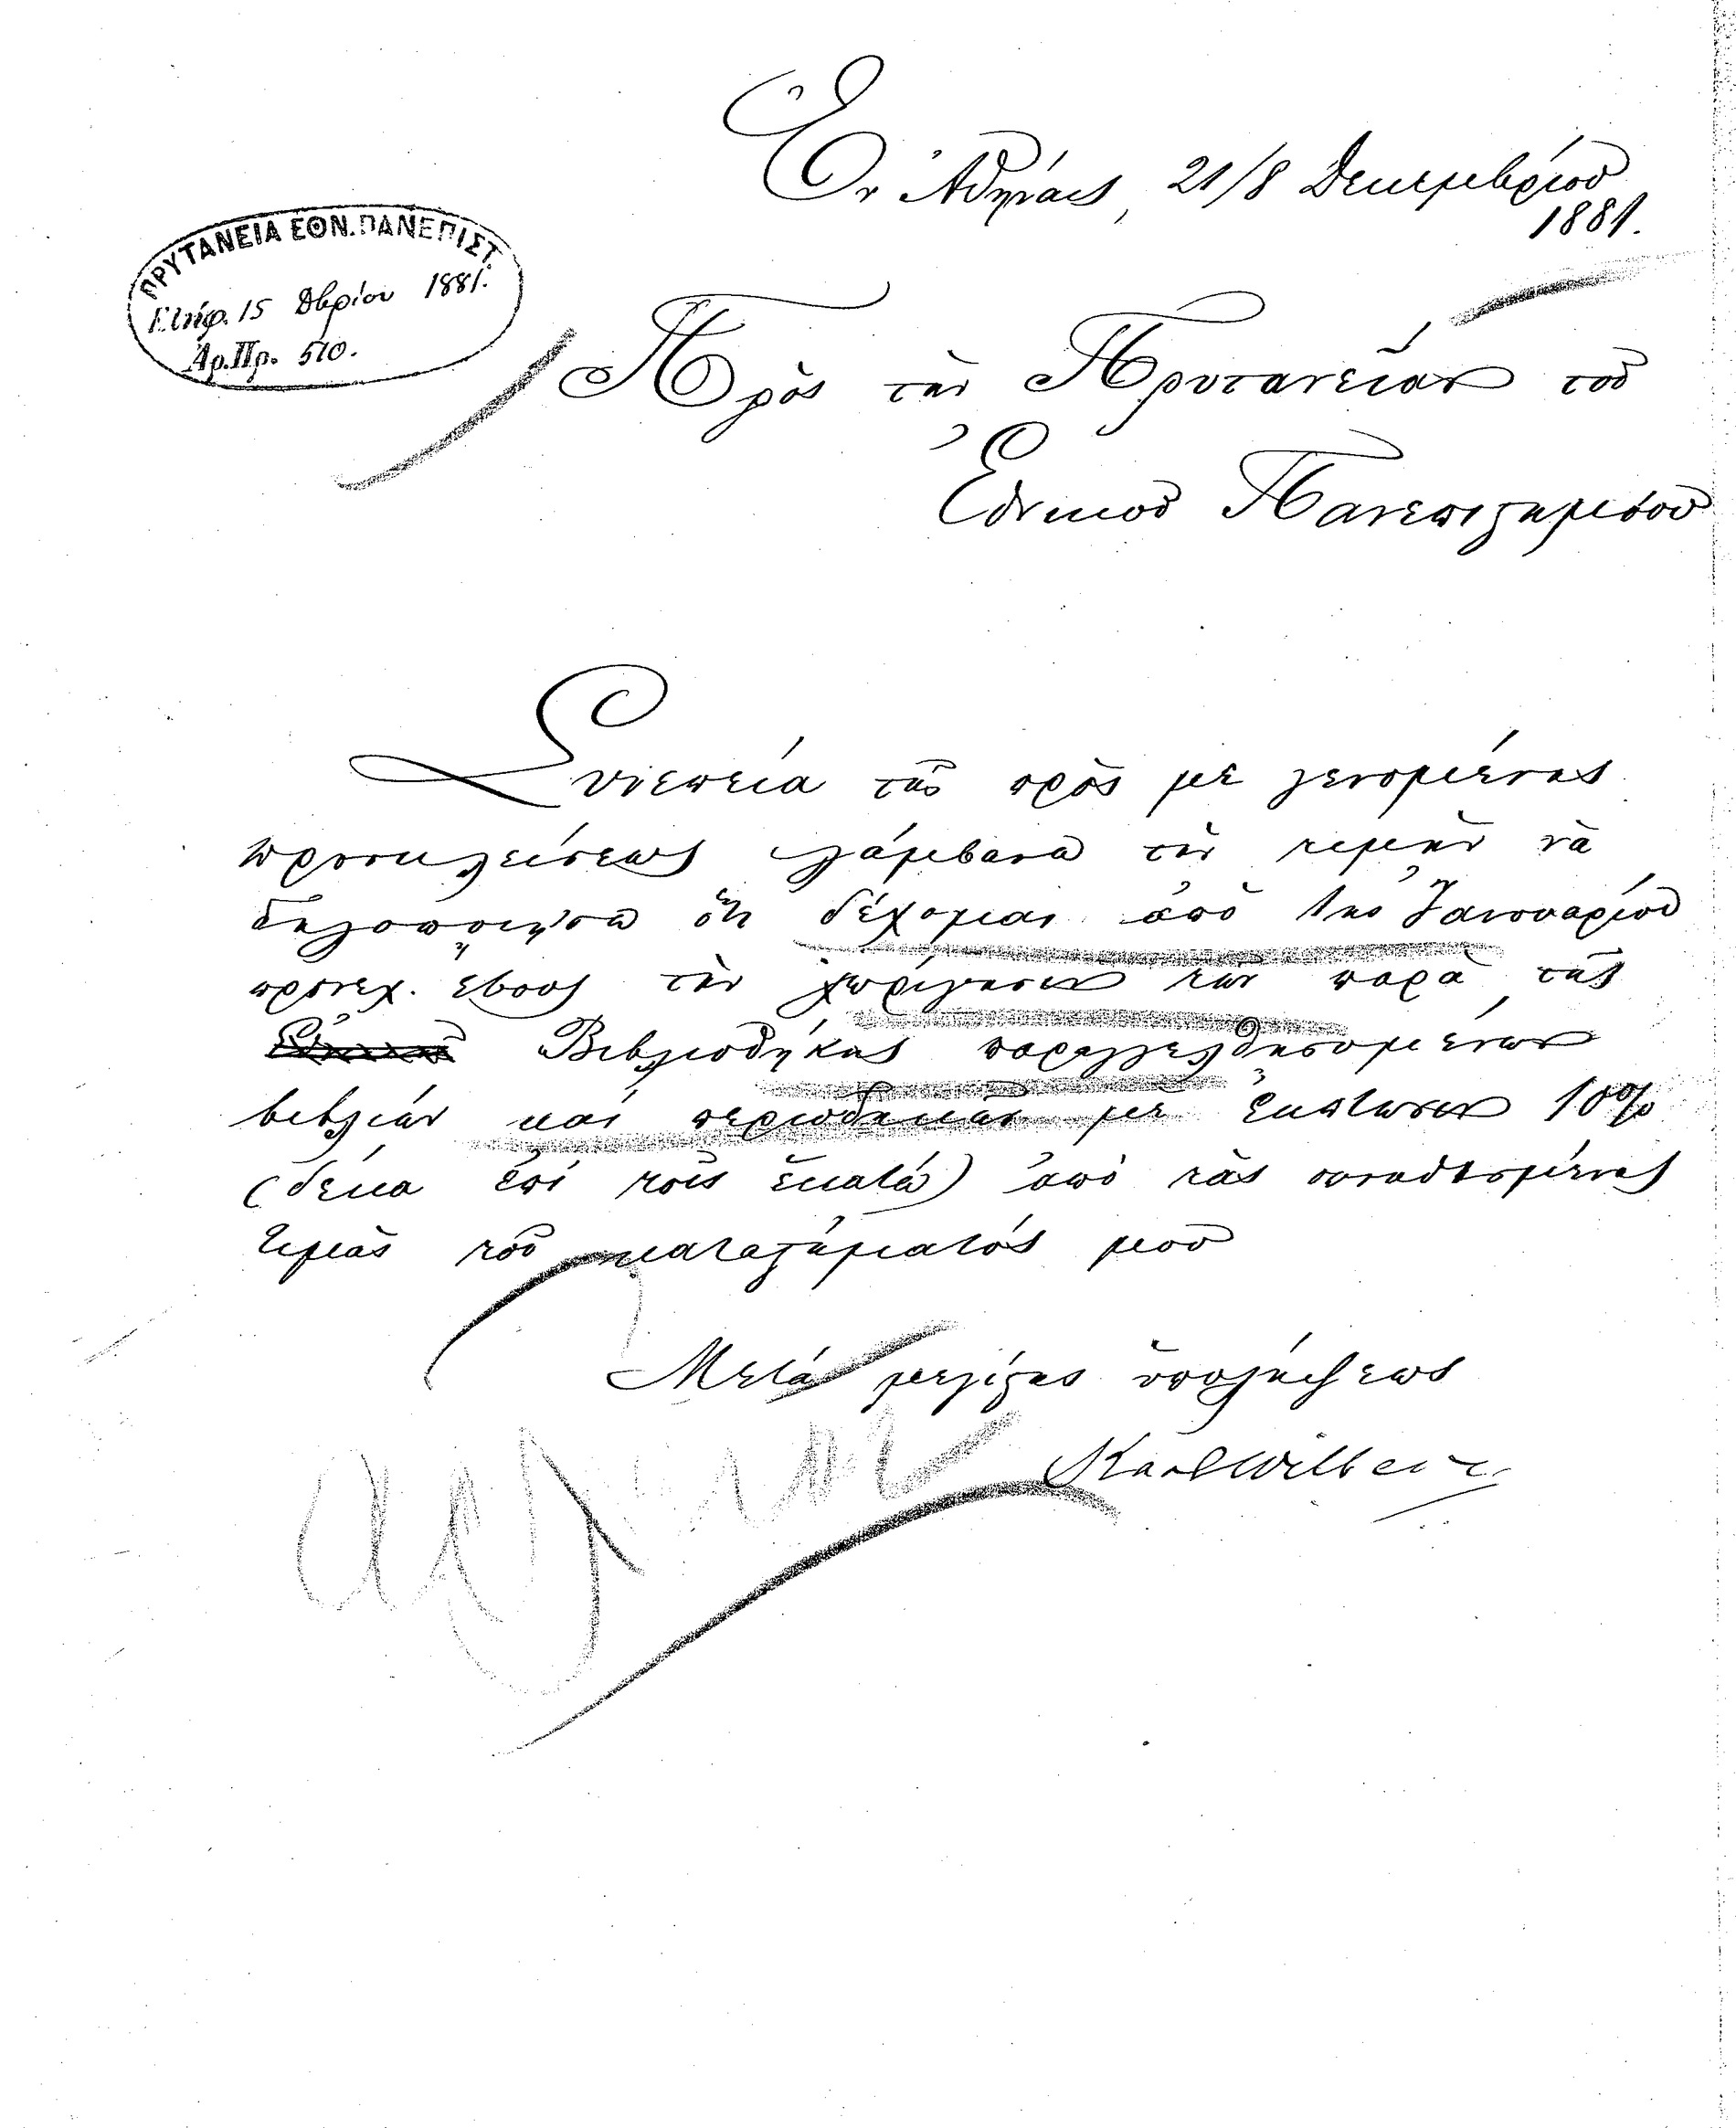 Ἐν Ἀθήναις, 21/8 Δεκεμβρίου
1881.
ΠΡΥΤΑΝΕΙΑ ΕΘΝ. ΠΑΝΕΠΙΣΤ.
Ἐλήφ. 15 Δβρίου 1881.
Ἀρ. Πρ. 510.
Πρὸς τὴν Πρυτανείαν τοῦ
Ἐθνικοῦ Πανεπιστημίου
Συνεπείᾳ τῆς πρὸς με γενομένης
προσκλήσεως λάμβανω τὴν τιμὴν νὰ
δηλοποιήσω ὅτι δέχομαι ἀπὸ 1ης Ἰανουαρίου
προσεχ. ἔτους τὴν χορήγησιν τῶν παρὰ τῆς
Βιβλιοθήκης παραγγελθησομένων
βιβλίων καὶ περιοδικῶν μὲ ἔκπτωσιν 10%
(δέκα ἐπὶ τοῖς ἑκατὸ) ἀπὸ τὰς συνειθισμένας
τιμὰς τοῦ καταστήματός μου
Μετὰ μεγίστης ὑπολήψεως
Karl Wilberg